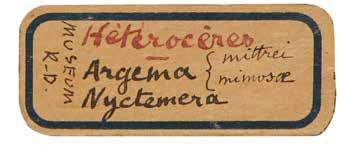 MUSEUM
R.D.
Hétérocères
Argema { mittrei
mimosæ
Nyctemera